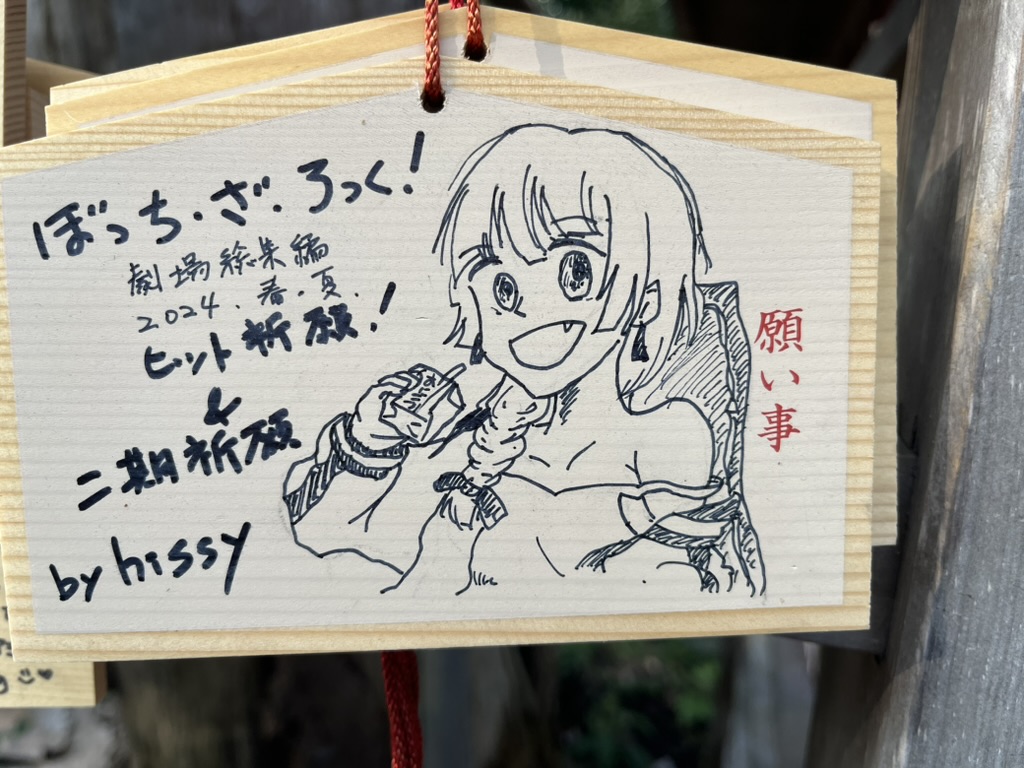 ぼっち・ざ・ろっく!
劇場総集編
2024.春.夏.
ヒット祈願!
&
二期祈願
by hissy
おにころ
願い事